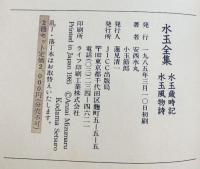 水玉全集　水玉歳時記
水玉風物詩
発行　一九八五年三月一〇日初刷
著者　安西水丸
小玉節郎
発行人　蓮見清一
発行所　JICC出版局
〒102 東京都千代田区麹町五―五―五
電話〇三(二三四)四六二一
印刷所　ライフ印刷工業株式会社
Printed in Japan 1985
©Anzai Mizumaru
Kodama Setsuro
乱丁・落丁本はお取替えいたします。
2冊セット定価2,000円(分売不可)